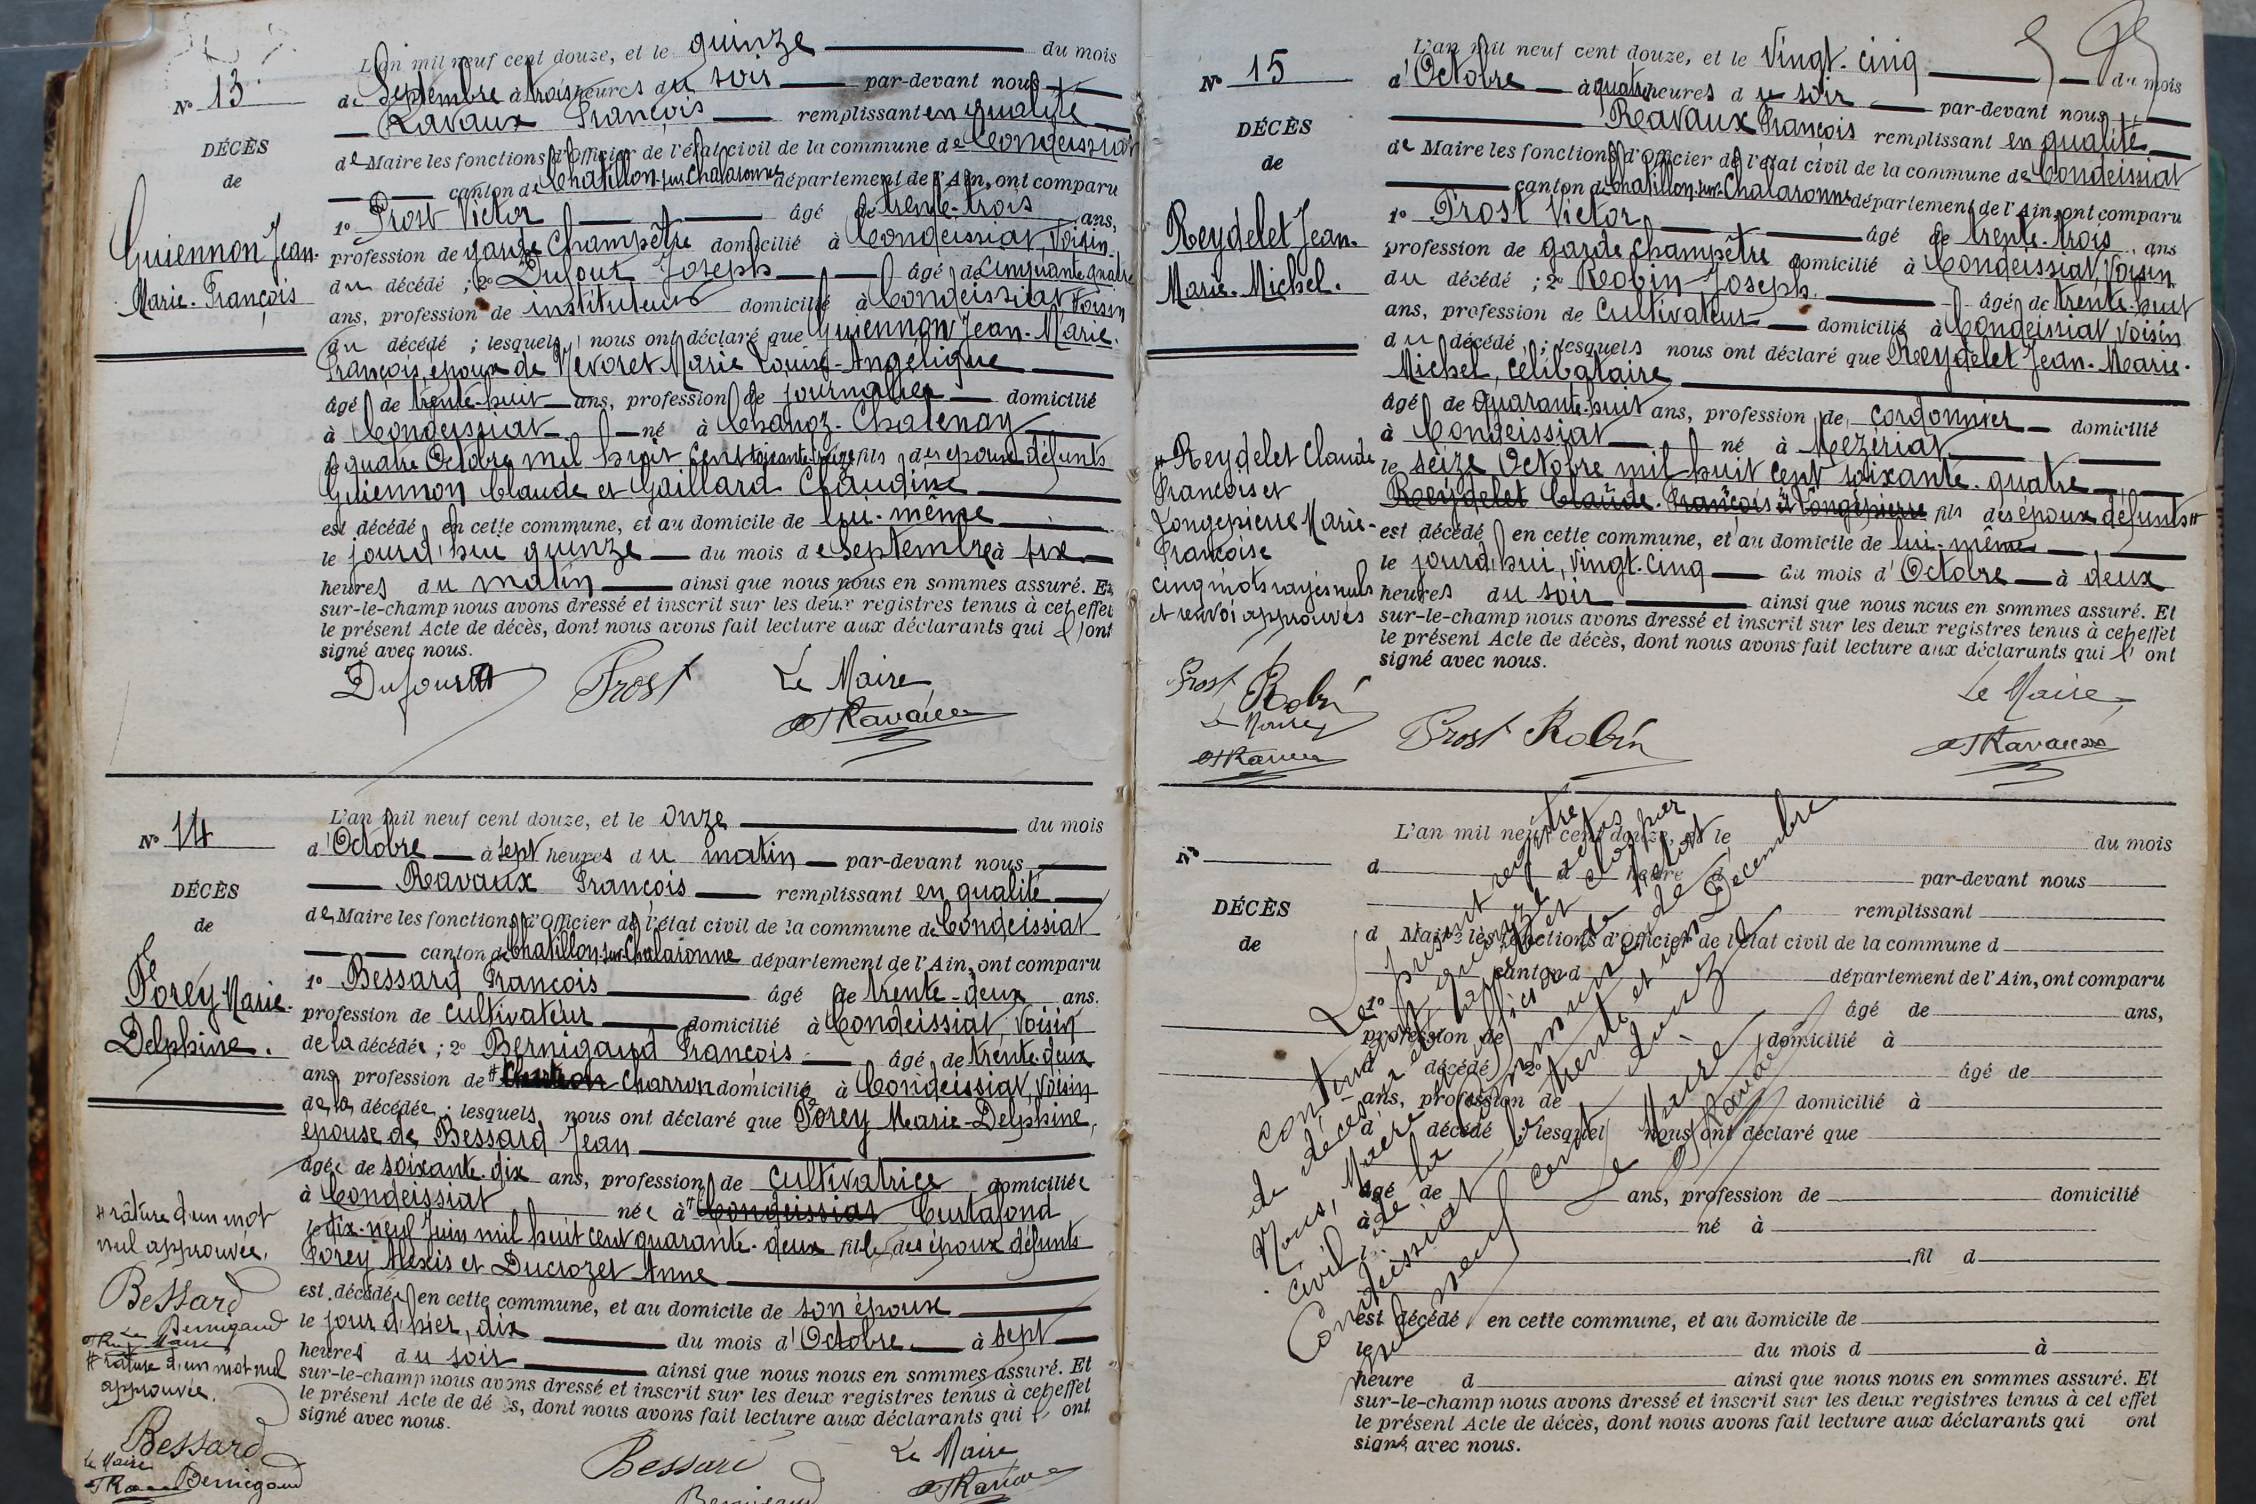 N° 13
DÉCÈS
de
Guiennon Jean-
Marie-François
L'an mil neuf cent douze, et le quinze du mois
de Septembre à trois heures du soir par-devant nous
Ravaux François remplissant en qualité
de Maire les fonctions d'Officier de l'état civil de la commune de Condeissiat
canton de Chatillon-sur-Chalaronne département de l'Ain, ont comparu
1° Prost Victor âgé de trente-trois ans,
profession de garde champêtre domicilié à Condeissiat, Voisin
du décédé ; 2° Dufour Joseph âgé de cinquante quatre
ans, profession de instituteur domicilié à Condeissiat Voisin
du décédé ; lesquels nous ont déclaré que Guiennon Jean-Marie-
François, époux de Nevoret Marie Louise-Angélique
âgé de trente-huit ans, profession de journalier domicilié
à Condeissiat né à Chanoz-Chatenay
le quatre Octobre mil huit cent soixante treize fils des époux défunts
Guiennon Claude et Gaillard Claudine
est décédé en cette commune, et au domicile de lui-même
le jourd'hui quinze du mois de Septembre à six
heures du matin ainsi que nous nous en sommes assuré. Et
sur-le-champ nous avons dressé et inscrit sur les deux registres tenus à cet effet
le présent Acte de décès, dont nous avons fait lecture aux déclarants qui ont
signé avec nous.
Dufour Prost Le Maire
Ravaux
N° 14
DÉCÈS
de
Forey Marie-
Delphine.
L'an mil neuf cent douze, et le onze du mois
d'Octobre à sept heures du matin par-devant nous
Ravaux François remplissant en qualité
de Maire les fonctions d'Officier de l'état civil de la commune de Condeissiat
canton de Chatillon-sur-Chalaronne département de l'Ain, ont comparu
1° Bessard François âgé de trente-deux ans.
profession de cultivateur domicilié à Condeissiat, Voisin
de la décédée ; 2° Bernigaud François âgé de trente deux
ans profession de # Charron domicilié à Condeissiat, Voisin
de la décédée ; lesquels nous ont déclaré que Forey Marie-Delphine,
épouse de Bessard Jean
âgée de soixante-dix ans, profession de cultivatrice domiciliée
à Condeissiat née à # Condeissiat Curtafond
le dix-neuf Juin mil huit cent quarante-deux fille des époux défunts
Forey Alexis et Ducrozet Anne
est décédée en cette commune, et au domicile de son époux
le jour d'hier, dix du mois d'Octobre à sept
heures du soir ainsi que nous nous en sommes assuré. Et
sur-le-champ nous avons dressé et inscrit sur les deux registres tenus à cet effet
le présent Acte de décès, dont nous avons fait lecture aux déclarants qui ont
signé avec nous.
# râture d'un mot
nul approuvée.
Bessard
Bernigaud
Le Maire
# râture d'un mot nul
approuvée.
Bessard
Le Maire
Bernigaud
Bessard Le Maire
Ravaux
Bernigaud
N° 15
DÉCÈS
de
Reydelet Jean-
Marie-Michel.
L'an mil neuf cent douze, et le Vingt-cinq du mois
d'Octobre à quatre heures du soir par-devant nous
Ravaux François remplissant en qualité
de Maire les fonctions d'Officier de l'état civil de la commune de Condeissiat
canton de Chatillon-sur-Chalaronne département de l'Ain, ont comparu
1° Prost Victor âgé de trente-trois ans
profession de garde champêtre domicilié à Condeissiat, Voisin
du décédé ; 2° Robin Joseph âgé de trente-huit
ans, profession de cultivateur domicilié à Condeissiat, voisin
du décédé ; lesquels nous ont déclaré que Reydelet Jean-Marie-
Michel, célibataire
âgé de quarante-huit ans, profession de cordonnier domicilié
à Condeissiat né à Mezériat
le seize Octobre mil huit cent soixante-quatre
Reydelet Claude-François et Longepierre fils des époux défunts #
est décédé en cette commune, et au domicile de lui-même
le jourd'hui, vingt-cinq du mois d'Octobre à deux
heures du soir ainsi que nous nous en sommes assuré. Et
sur-le-champ nous avons dressé et inscrit sur les deux registres tenus à cet effet
le présent Acte de décès, dont nous avons fait lecture aux déclarants qui ont
signé avec nous.
# Reydelet Claude
François et
Longepierre Marie-
Françoise
cinq mots rayés nuls
et renvoi approuvés
Prost Robin
Le Maire
Ravaux
Prost Robin
Le Maire
Ravaux
N°
DÉCÈS
de
L'an mil neuf cent douze, et le du mois
d à heure d par-devant nous
remplissant
d Maire les fonctions d'Officier de l'état civil de la commune d
canton d département de l'Ain, ont comparu
1° âgé de ans,
profession de domicilié à
d décédé 2° âgé de
ans, profession de domicilié à
d décédé ; lesquel nous ont déclaré que
âgé de ans, profession de domicilié
à né à
fil d
est décédé en cette commune, et au domicile de
le du mois d à
heure d ainsi que nous nous en sommes assuré. Et
sur-le-champ nous avons dressé et inscrit sur les deux registres tenus à cet effet
le présent Acte de décès, dont nous avons fait lecture aux déclarants qui ont
signé avec nous.
Le présent registre
contenant quinze actes
de décès a été arrêté et clos par
Nous, Maire, officier de l'état
civil de la Commune de
Condeissiat le trente et un Décembre
mil neuf cent douze
Le Maire
Ravaux